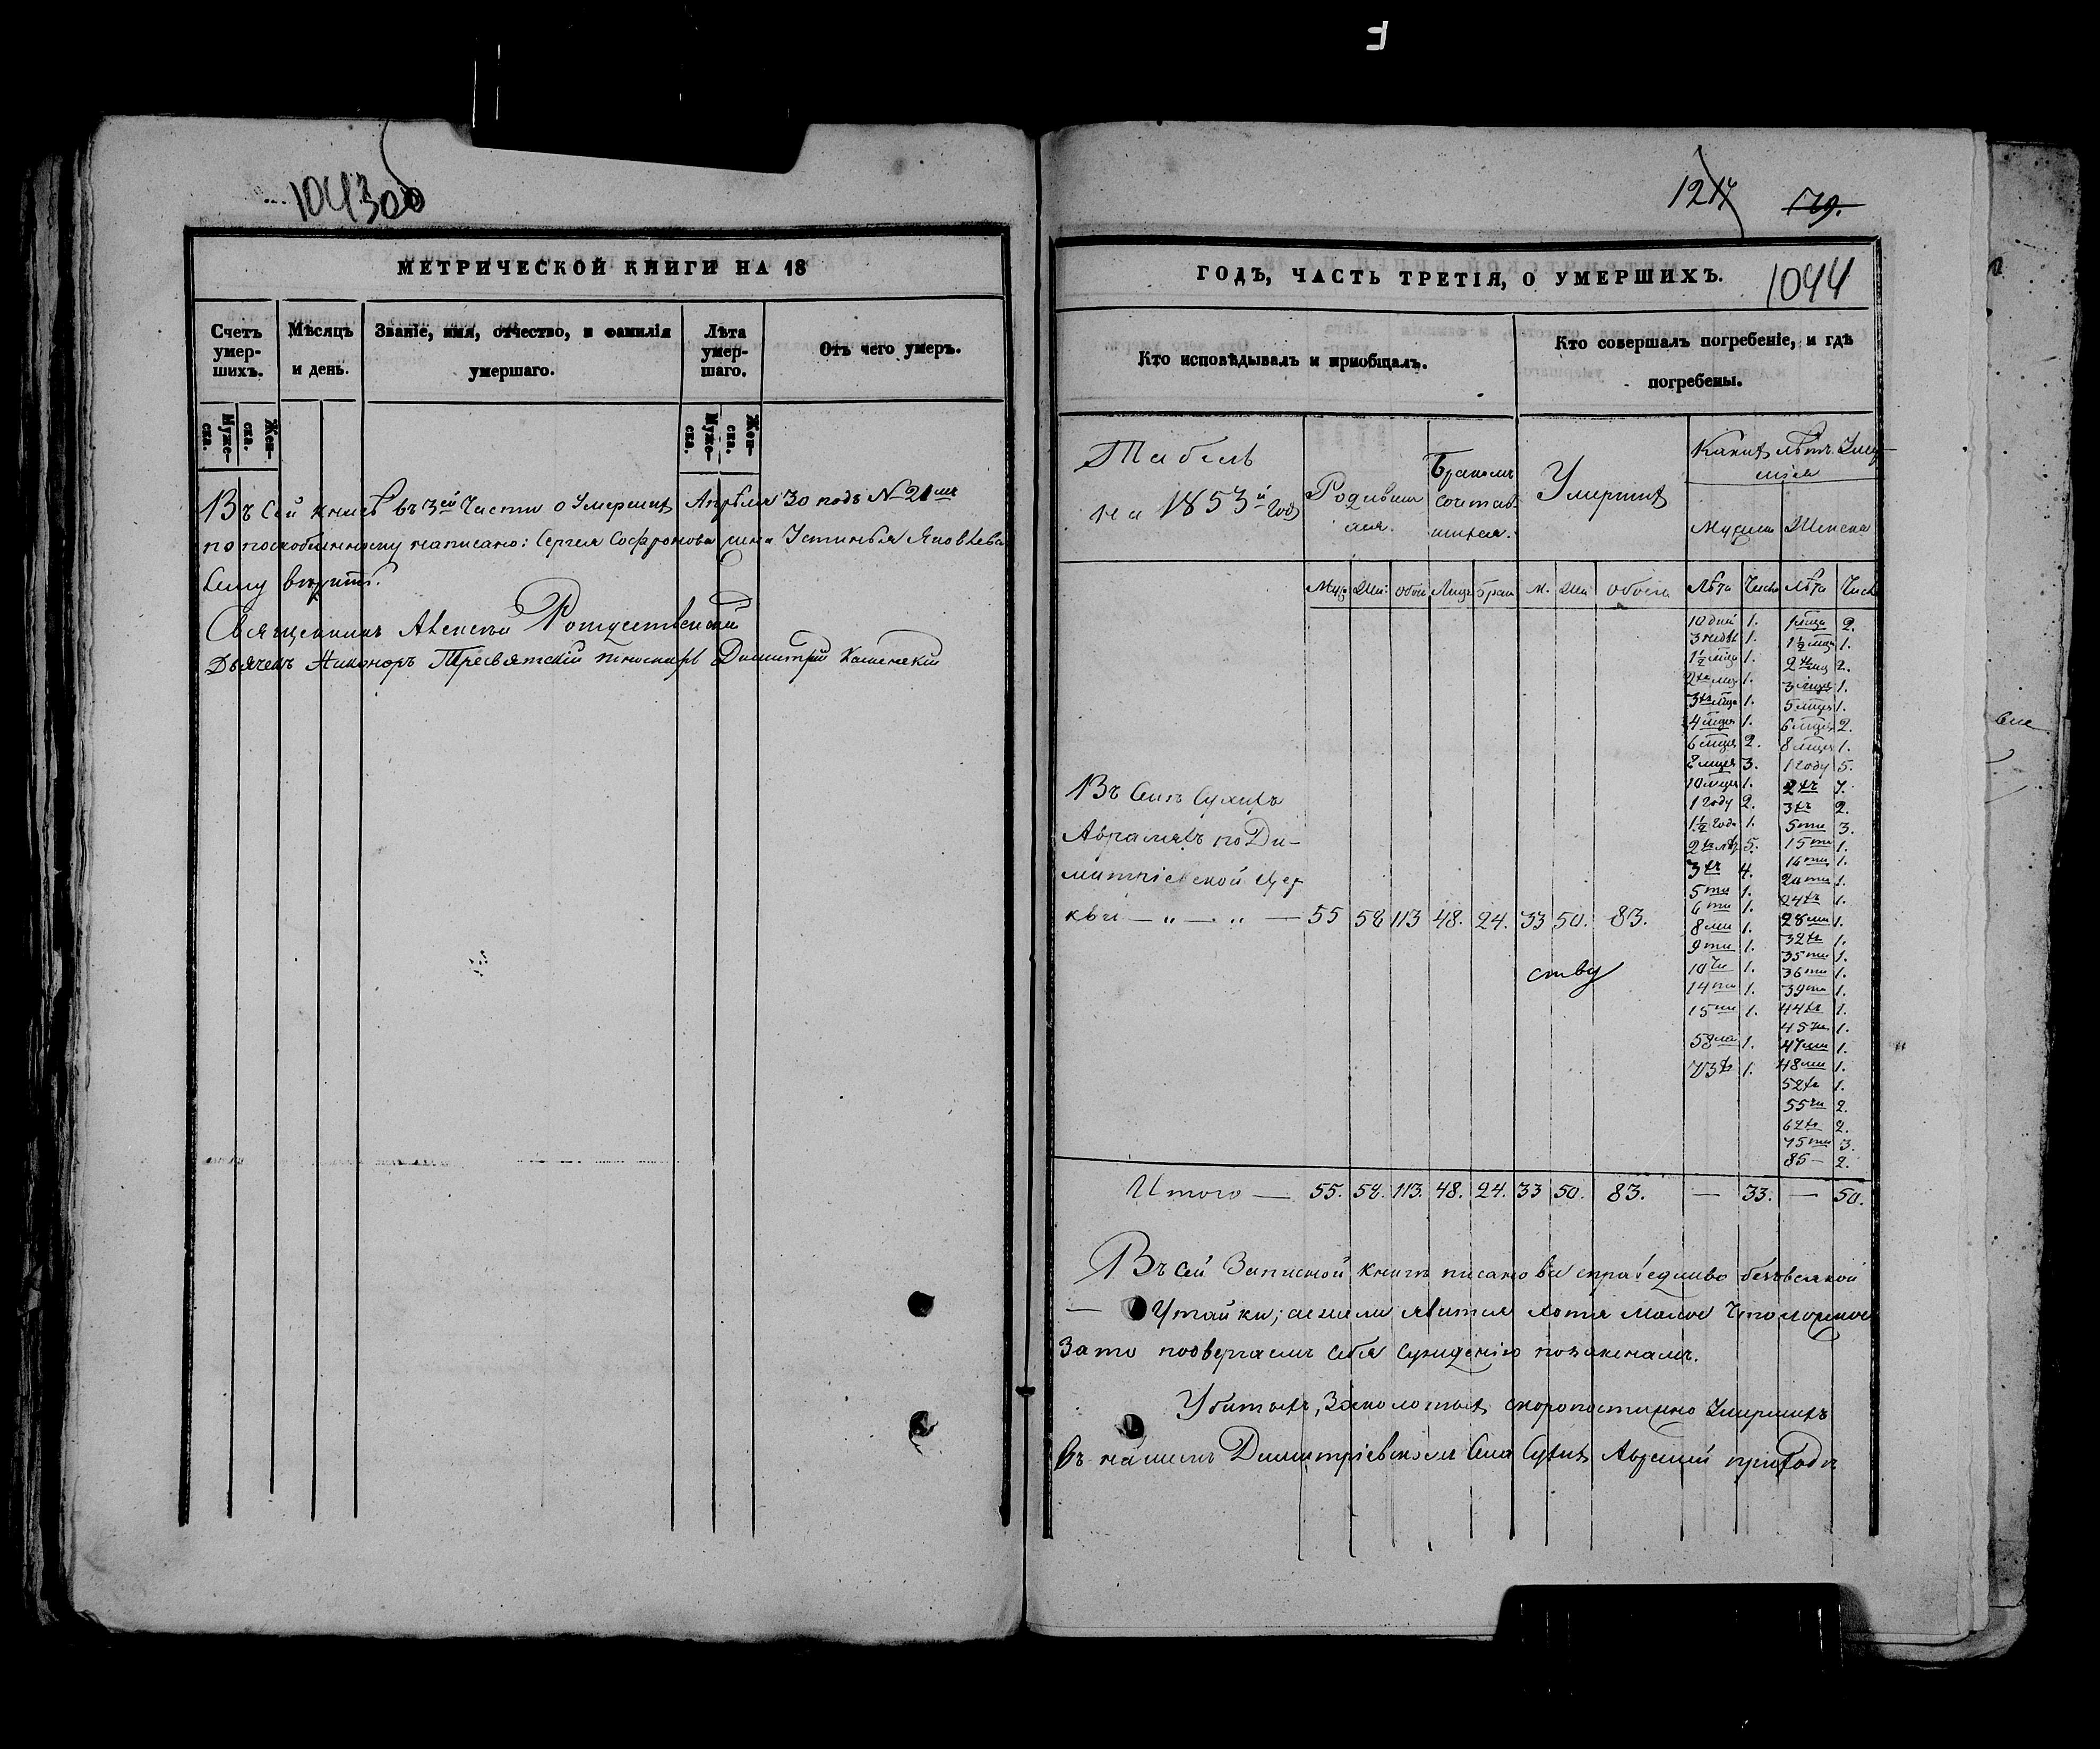 104300
МЕТРИЧЕСКОЙ КНИГИ НА 18
Счетъ умер-шихъ.
Мѣсяцъ и день.
Званіе, имя, отчество, и фамилія умершаго.
Лѣта умер-шаго.
Отъ чего умеръ.
Муже-ска.
Жен-ска.
Муже-ска.
Жен-ска.
Въ сей книгѣ въ 3ей Части о Умершихъ Апрѣля 30 подъ №
по поскобленному написано: Сергея Софронова жена Устинья Яковлева
сему вѣрить.
Священникъ Алексѣй Рождественскій
Дьячекъ Никоноръ Тресвятскій пономарь Димитрій Каменскій
1217 179.
ГОДЪ, ЧАСТЬ ТРЕТІЯ, О УМЕРШИХЪ.
1044
Кто исповѣдывалъ и пріобщалъ.
Кто совершалъ погребеніе, и гдѣ погребены.
Табель
на 1853й годъ
Родивши
аяся.
Бракомъ
сочетав
шихся.
Умершихъ
Какихъ лѣтъ
Мужеска Женска
Муж Жен обоего Лицъ брак М. Жен обоего Лѣта Число Лѣта Число
10 дней 1.
3 недѣл 1.
1½ мѣца 1.
2хъ мѣц 1.
3хъ мѣца 1.
4 мѣцев 1.
6 мѣцев 2.
8 мѣцев 3.
10 мѣцев 1.
1 году 2.
1½ года 1.
2хъ лѣт 5.
3хъ 4.
5ти 1.
6ти 1.
8ми 1.
9ти 1.
10ти 1.
14ти 1.
15ти 1.
58ми 1.
73хъ 1.
1 мѣца 2.
1½ мѣца 1.
2хъ мѣц 2.
3 мѣцев 1.
5 мѣцев 1.
6 мѣцев 2.
8 мѣцев 1.
1 году 5.
2хъ 7.
3хъ 2.
5ти 3.
15ти 1.
16ти 1.
20ти 1.
24хъ 1.
28ми 1.
32хъ 1.
35ти 1.
36ти 1.
39ти 1.
44хъ 1.
45ти 1.
47ми 1.
48ми 1.
52хъ 1.
55ти 2.
62хъ 2.
75ти 3.
85 — 2.
Въ Селѣ Сухихъ
Аврамяхъ по Ди-
митріевской Цер
кви — „ — „ — 55 58 113 48. 24. 33 50. 83.
ству
Итого — 55. 58. 113. 48. 24. 33 50. 83. — 33. — 50.
Въ сей Записной книгѣ писано все справедливо безъ всякой
— Утайки; ежели явится хотя малое что ложное
За то подвергаемъ себя сужденію по законамъ.
Убитыхъ, скоропостижно Умершихъ
въ нашемъ Димитріевскомъ Села Сухихъ приходѣ